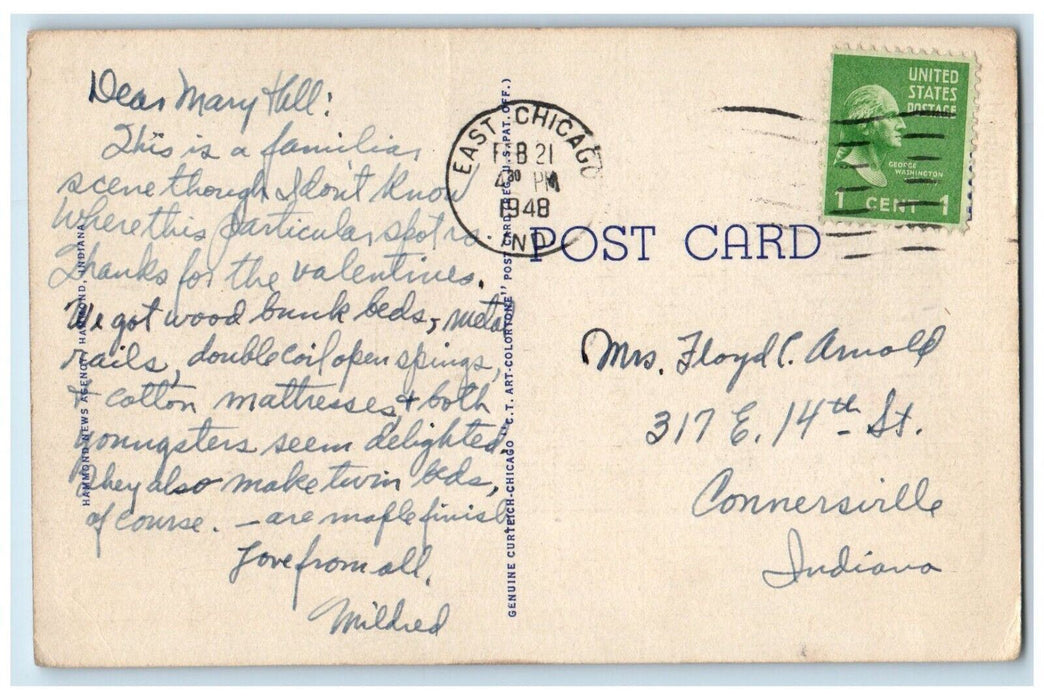 Dear Mary Hell:
This is a familiar
scene though I don't know
where this particular spot is.
Thanks for the valentines.
We got wood bunk beds, metal
rails, double coil open springs,
& cotton mattresses & both
youngsters seem delighted.
They also make twin beds,
of course. – are maple finish
Love from all,
Mildred
HAMMOND NEWS AGENCY HAMMOND, INDIANA
GENUINE CURTEICH-CHICAGO "C.T. ART-COLORTONE" POST CARD (REG. U.S. PAT. OFF.)
EAST CHICAGO
FEB 21
4 30 PM
1948
IND.
UNITED
STATES
POSTAGE
GEORGE
WASHINGTON
1 CENT 1
POST CARD
Mrs. Floyd C. Arnold
317 E. 14th St.
Connersville
Indiana